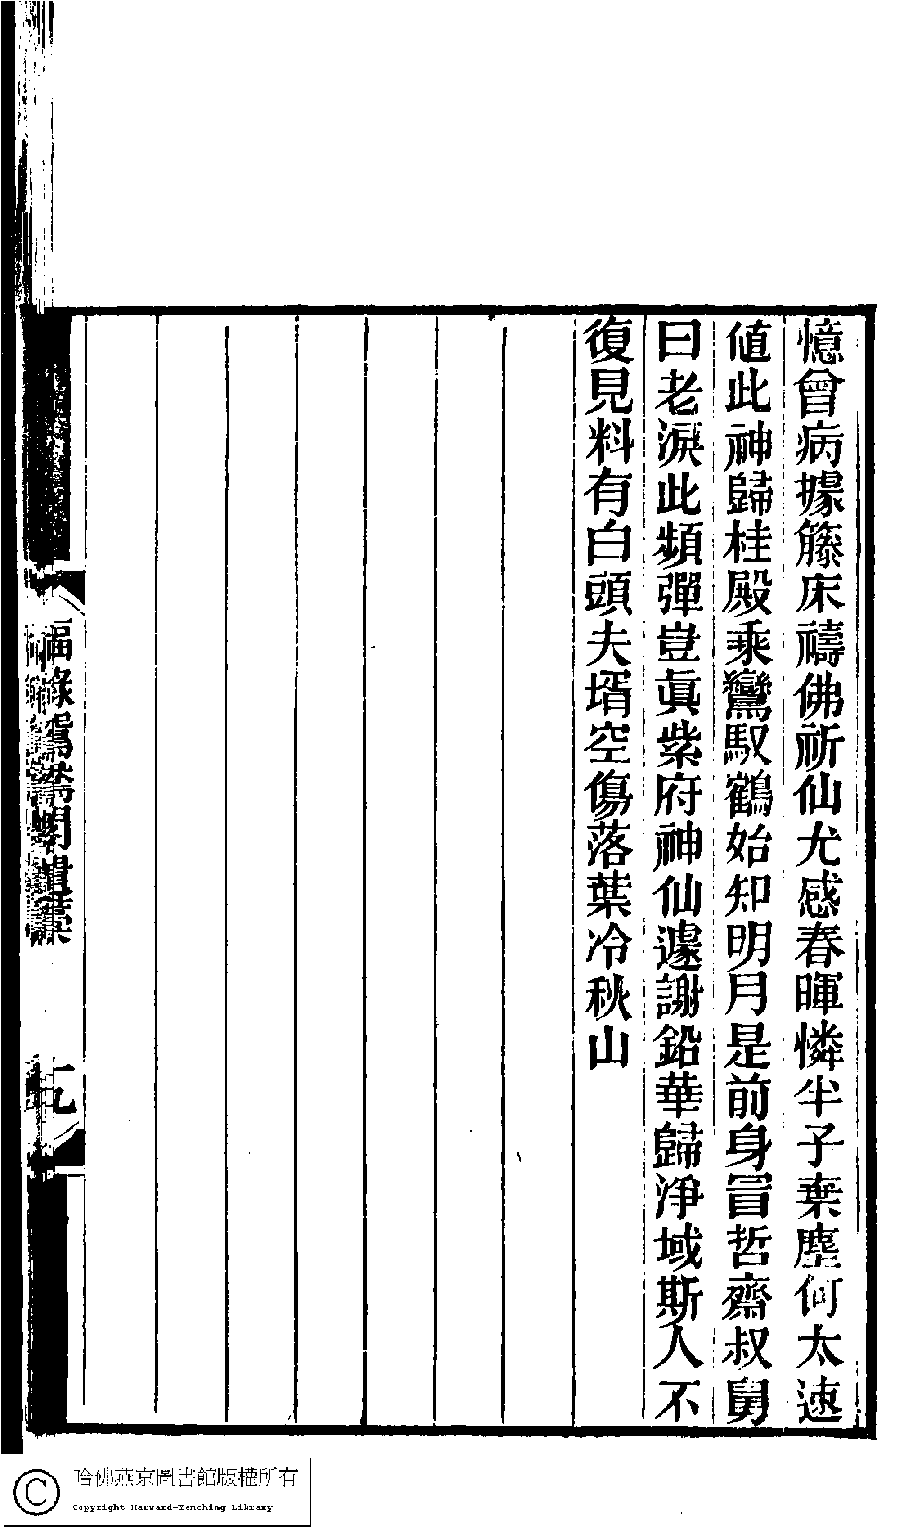 憶曾病據籐床禱佛祈仙尤感春暉憐半子棄塵何太速
値此神歸桂殿乘鸞馭鶴始知明月是前身冒哲齋叔舅
曰老淚此頻彈豈眞紫府神仙遽謝鉛華歸淨域斯人不
復見料有白頭夫壻空傷落葉冷秋山
福祿鴛鴦閣遺藁
五
哈佛燕京圖書館版權所有
Copyright Harvard-Yenching Library